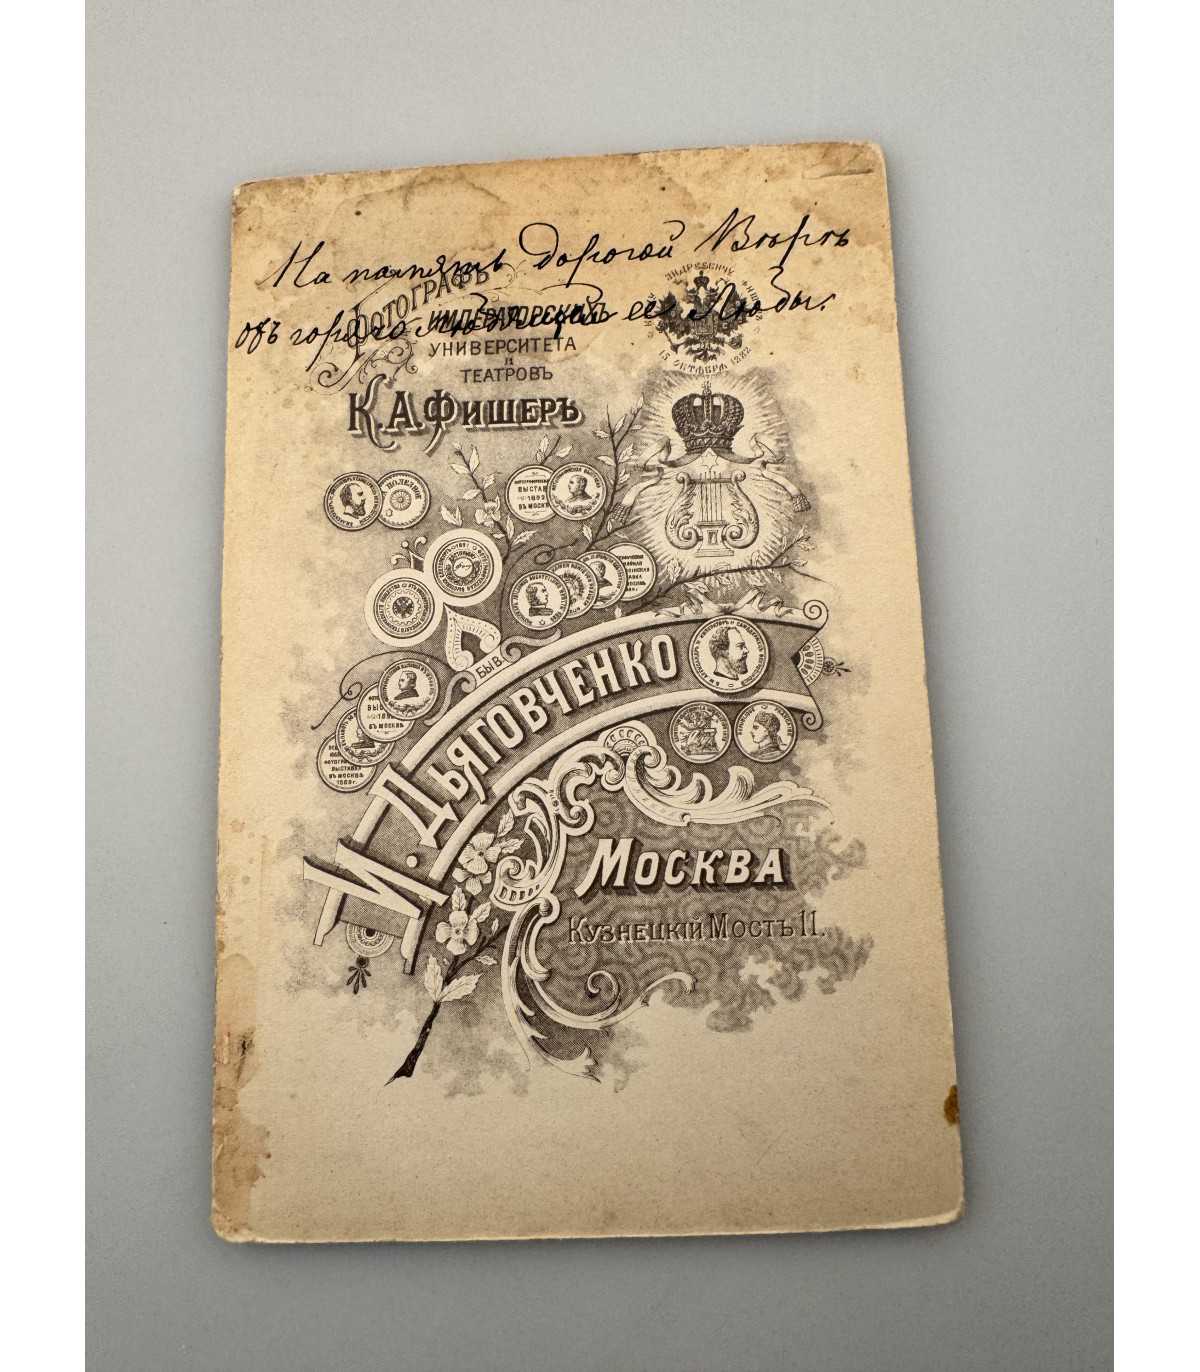 На память дорогой Вѣрѣ
отъ горячо любящей ее Любы.
Фотографъ
Императорскихъ
Университета
и
Театровъ
К.А.Фишеръ
15 октября 1882
ПОЛЕЗНОЕ
ВЫСТАВ
1892
ВЪ МОСКВ
БЫВ.
И. Дьяговченко
ВЫСТАВКА
ВЪ МОСКВѢ
Москва
Кузнецкій Мостъ 11.